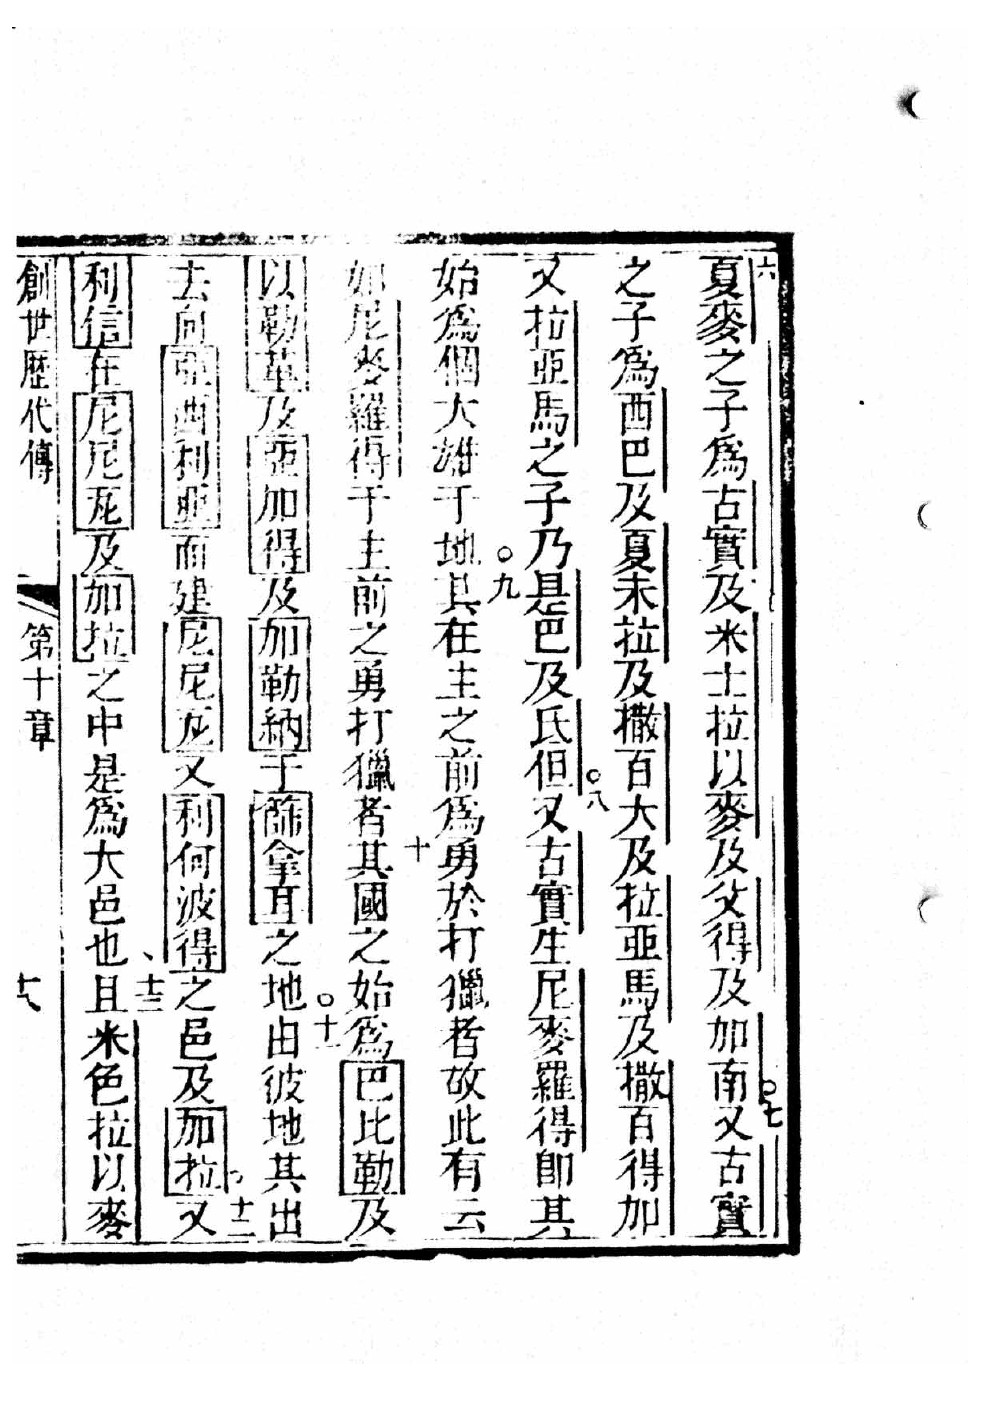 六
夏麥之子爲古實及米士拉以麥及父得及加南又古實
七
之子爲酉巴及夏未拉及撒百大及拉亞馬及撒百得加
又拉亞馬之子乃是巴及氐但又古實生尼麥羅得卽其
八
始爲個大雄于地其在主之前爲勇於打獵者故此有云
九
如尼麥羅得于主前之勇打獵者其國之始爲巴比勒及
十
以勒革及亞加得及加勒納于篩拿耳之地由彼地其出
十一
去向亞西利亞而建尼尼瓦又利何波得之邑及加拉又
十二
利信在尼尼瓦及加拉之中是爲大邑也且米色拉以麥
十三
創世歷代傳
第十章
十八